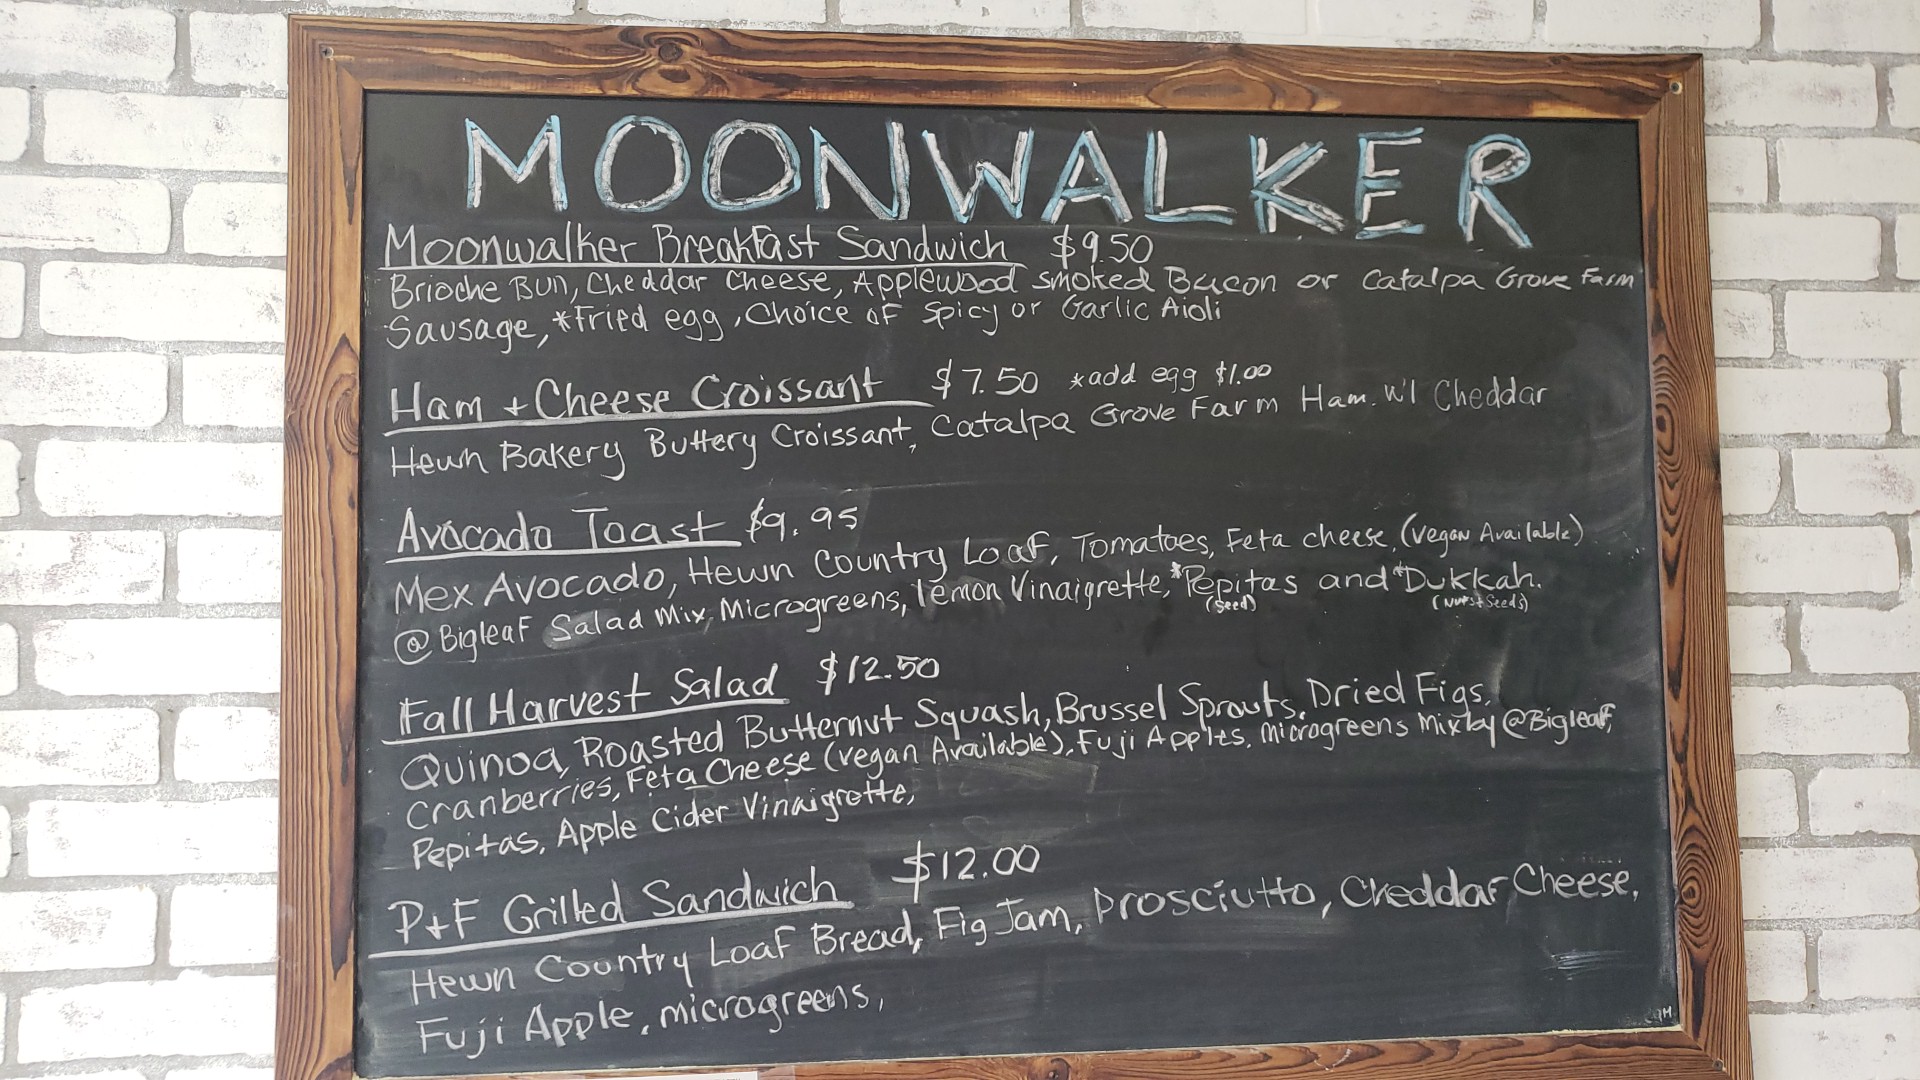 MOONWALKER
Moonwalker Breakfast Sandwich $9.50
Brioche Bun, Cheddar Cheese, Applewood smoked Bacon or Catalpa Grove Farm
Sausage, *Fried egg, Choice of Spicy or Garlic Aioli
Ham + Cheese Croissant $7.50 *add egg $1.00
Hewn Bakery Buttery Croissant, Catalpa Grove Farm Ham. W/ Cheddar
Avocado Toast $9.95
Mex Avocado, Hewn Country Loaf, Tomatoes, Feta cheese, (vegan Available)
@Bigleaf Salad Mix, Microgreens, lemon Vinaigrette, *Pepitas and *Dukkah.
(Seed) (Nuts+Seeds)
Fall Harvest Salad $12.50
Quinoa, Roasted Butternut Squash, Brussel Sprouts, Dried Figs,
Cranberries, Feta Cheese (vegan Available), Fuji Apples, Microgreens Mix by @Bigleaf,
Pepitas, Apple Cider Vinaigrette,
P+F Grilled Sandwich $12.00
Hewn Country Loaf Bread, Fig Jam, Prosciutto, Cheddar Cheese,
Fuji Apple, microgreens,